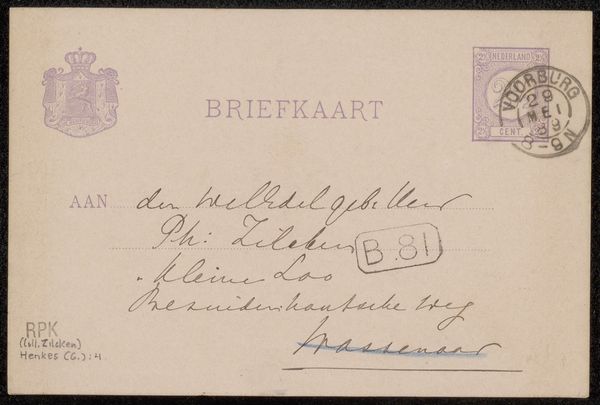 BRIEFKAART
NEDERLAND
2½ 2½
2½ CENT. 2½
VOORBURG
29
MEI
89
AAN den WelEdelgeb. Heer
Ph: Zilcken
B.81
Kleine Loo
Bezuidenhoutsche Weg
Wassenaar
RPK
(coll. Zilcken)
Henkes (G.): 4